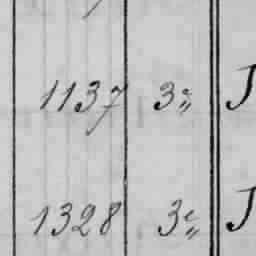 1137 3e„ J
1328 3e„ J